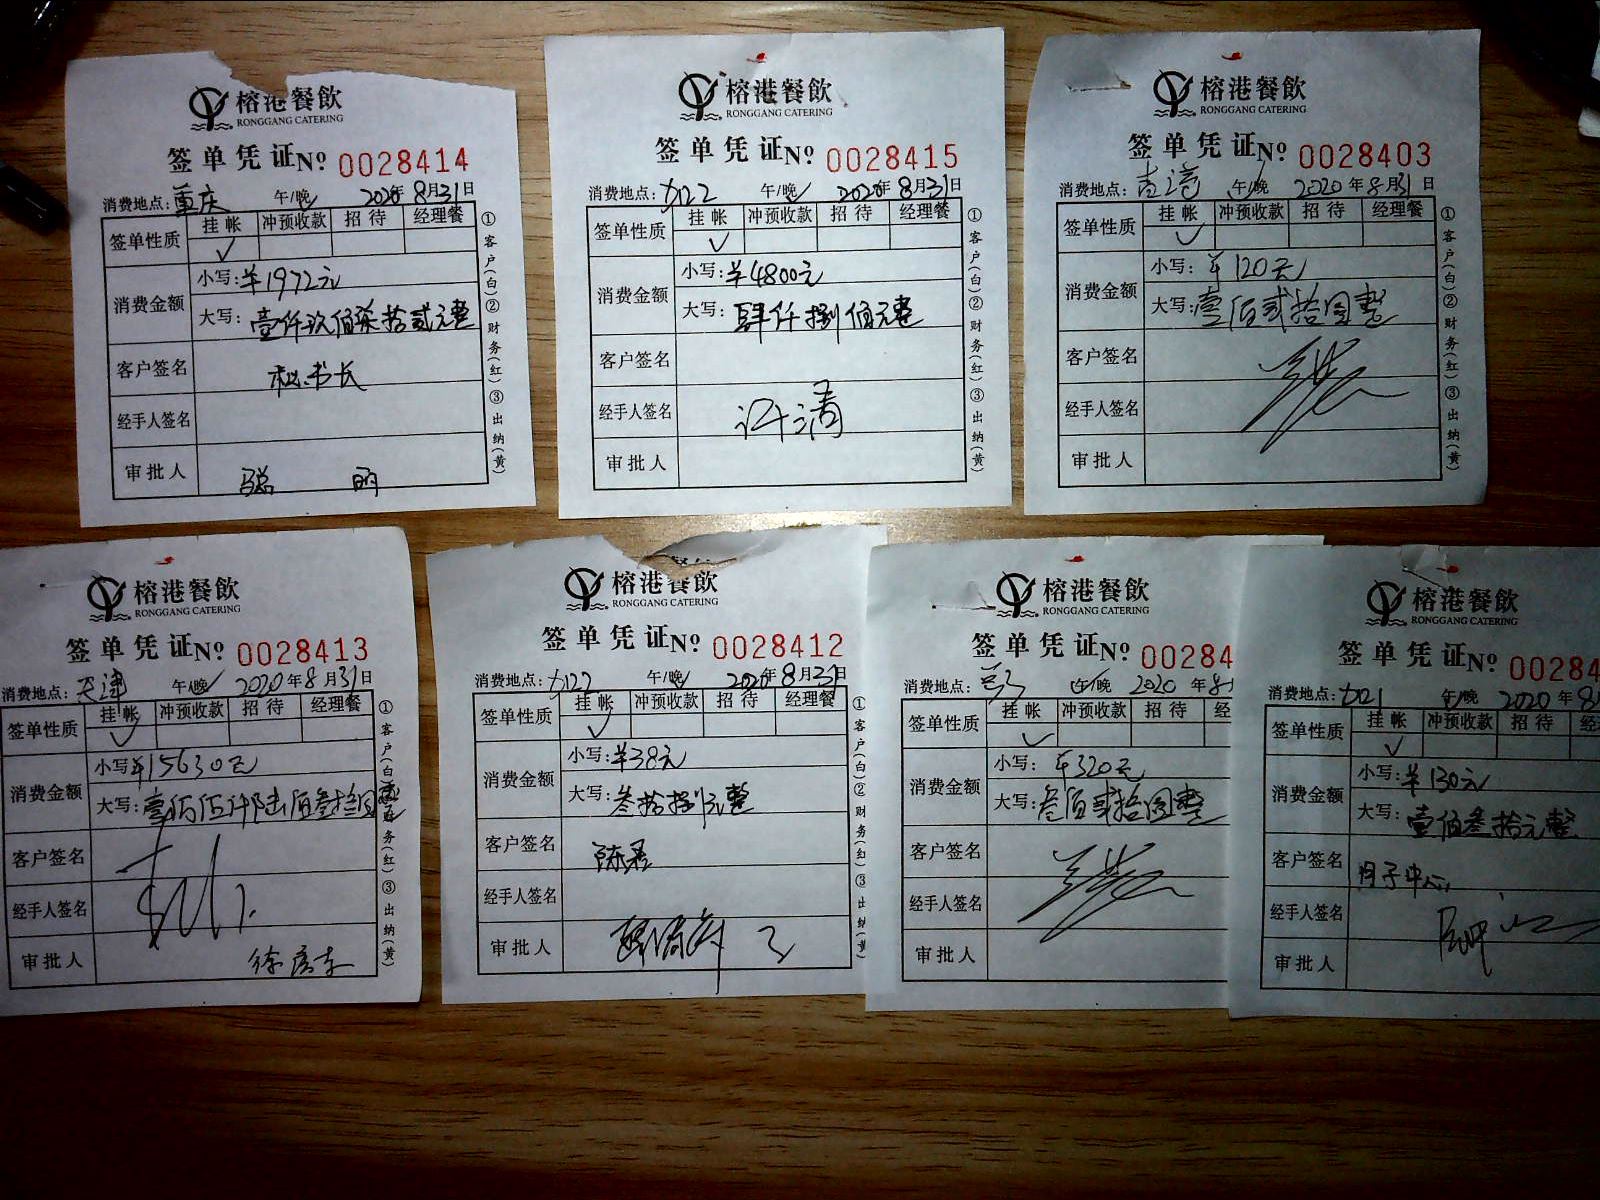 榕港餐飲
RONGGANG CATERING
签单凭证№ 0028414
消费地点：重庆 午/晚 2020年8月31日
签单性质 挂帐 冲预收款 招待 经理餐
消费金额 小写：¥1972元
大写：壹仟玖佰柒拾贰元整
客户签名 林书长
经手人签名
审批人
①客户(白)②财务(红)③出纳(黄)
榕港餐飲
RONGGANG CATERING
签单凭证№ 0028415
消费地点： 午/晚 2020年8月31日
签单性质 挂帐 冲预收款 招待 经理餐
消费金额 小写：¥4800元
大写：肆仟捌佰元整
客户签名
经手人签名 许清
审批人
①客户(白)②财务(红)③出纳(黄)
榕港餐飲
RONGGANG CATERING
签单凭证№ 0028403
消费地点： 午/晚 2020年8月31日
签单性质 挂帐 冲预收款 招待 经理餐
消费金额 小写：¥120元
大写：壹佰贰拾圆整
客户签名
经手人签名
审批人
①客户(白)②财务(红)③出纳(黄)
榕港餐飲
RONGGANG CATERING
签单凭证№ 0028413
消费地点：天津 午/晚 2020年8月31日
签单性质 挂帐 冲预收款 招待 经理餐
消费金额 小写：¥15630元
大写：壹万伍仟陆佰叁拾圆整
客户签名
经手人签名
审批人 徐彦东
①客户(白)②财务(红)③出纳(黄)
榕港餐飲
RONGGANG CATERING
签单凭证№ 0028412
消费地点： 午/晚 2020年8月31日
签单性质 挂帐 冲预收款 招待 经理餐
消费金额 小写：¥38元
大写：叁拾捌元整
客户签名
经手人签名
审批人
①客户(白)②财务(红)③出纳(黄)
榕港餐飲
RONGGANG CATERING
签单凭证№ 00284
消费地点： 午/晚 2020年8
签单性质 挂帐 冲预收款 招待 经
消费金额 小写：¥320元
大写：叁佰贰拾圆整
客户签名
经手人签名
审批人
榕港餐飲
RONGGANG CATERING
签单凭证№ 00284
消费地点： 午/晚 2020年8
签单性质 挂帐 冲预收款 招待 经
消费金额 小写：¥130元
大写：壹佰叁拾元整
客户签名 月子中心
经手人签名
审批人